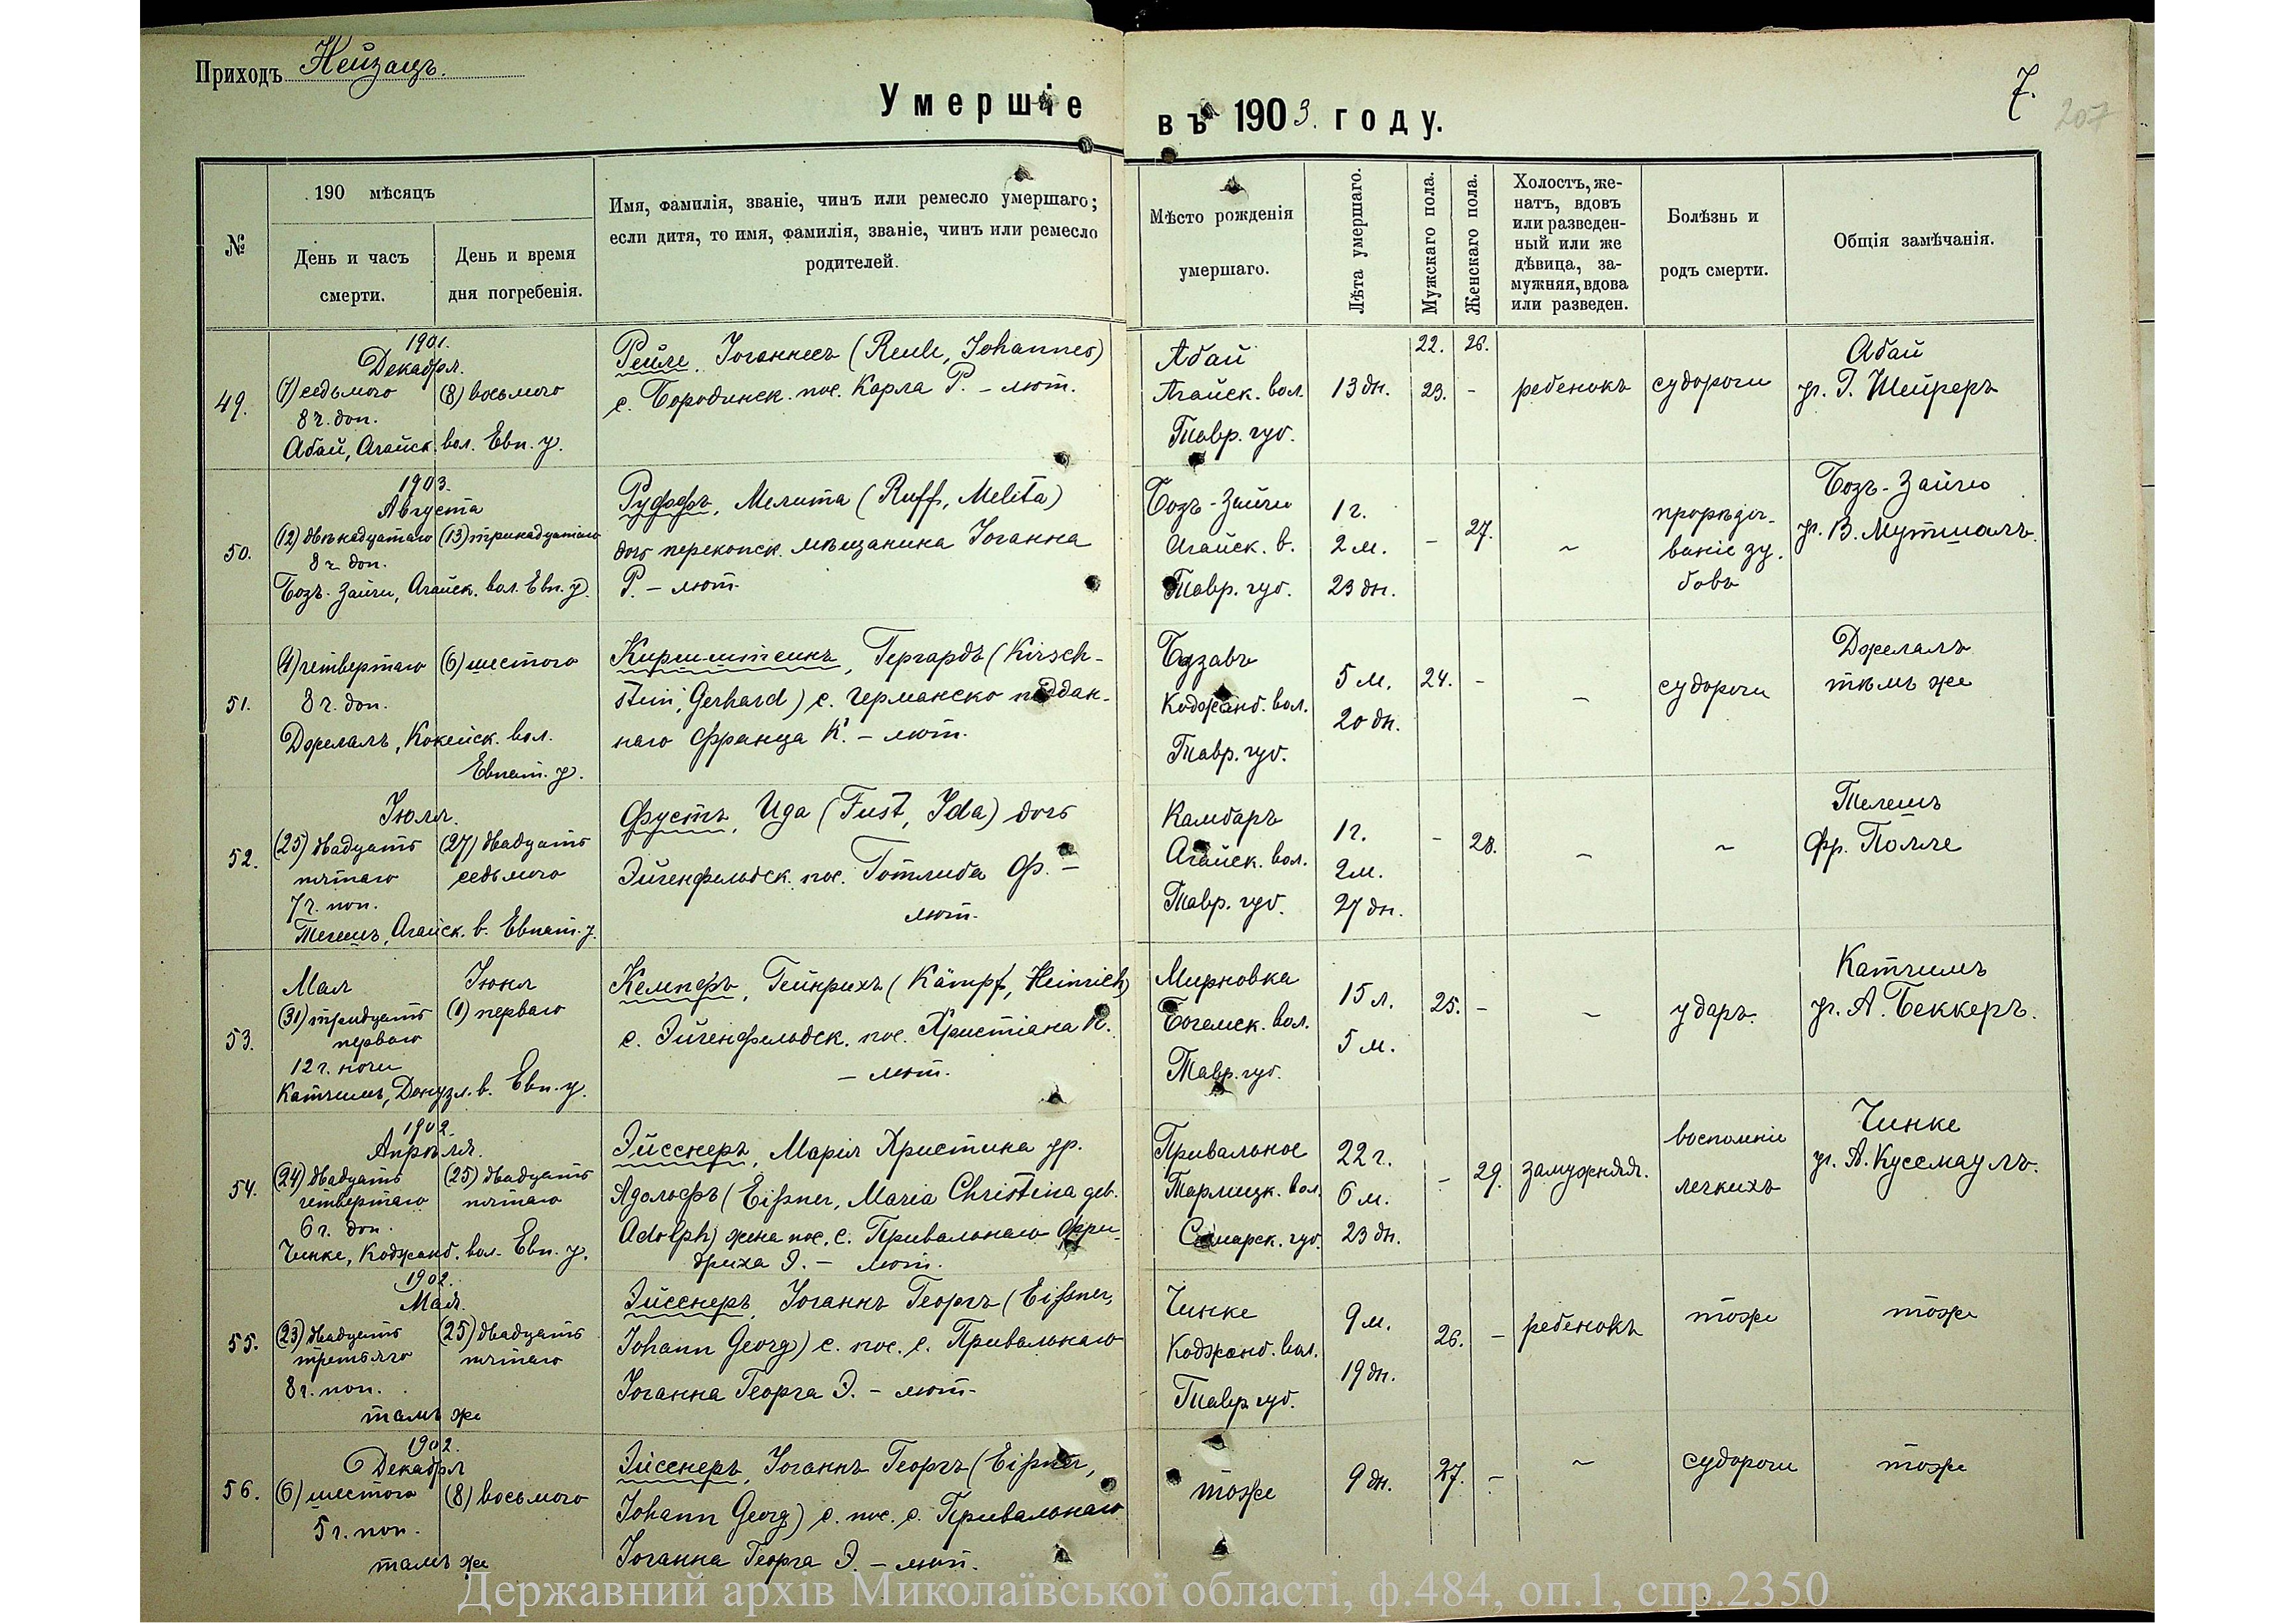 Приходъ Нейзацъ.
7.
207
Умершіе въ 1903. году.
№
190 мѣсяцъ
День и часъ смерти.
День и время дня погребенія.
Имя, фамилія, званіе, чинъ или ремесло умершаго;
если дитя, то имя, фамилія, званіе, чинъ или ремесло
родителей.
Мѣсто рожденія
умершаго.
Лѣта умершаго.
Мужскаго пола.
Женскаго пола.
Холостъ, же-
натъ, вдовъ
или разведен-
ный или же
дѣвица, за-
мужняя, вдова
или разведен.
Болѣзнь и
родъ смерти.
Общія замѣчанія.
49.
1901.
Декабря.
(7) седьмого
8 ч. доп.
(8) восьмого
Абай, Агайск. вол. Евп. у.
Рейле, Іоганнесъ (Reule, Johannes)
с. Бородинск. пос. Карла Р. – лют.
Абай
Агайск. вол.
Тавр. губ.
13 дн.
22.
23.
26.
-
ребенокъ
судороги
Абай
уч. Г. Шейреръ
50.
1903.
Августа
(12) двѣнадцатаго
8 ч. доп.
(13) тринадцатаго
Бозъ-Зайчи, Агайск. вол. Евп. у.
Руффъ, Мелита (Ruff, Melita)
дочь перекопск. мѣщанина Іоганна
Р. – лют.
Бозъ-Зайчи
Агайск. в.
Тавр. губ.
1 г.
2 м.
23 дн.
-
27.
~
прорѣзы-
ваніе зу-
бовъ
Бозъ-Зайчи
уч. В. Мутшалъ.
51.
(4) четвертаго
8 ч. доп.
(6) шестого
Джелалъ, Кокейск. вол.
Евпат. у.
Кирштеинъ, Гергардъ (Kirsch-
stein, Gerhard) с. германско поддан-
наго Франца К. – лют.
Бузавъ
Коджанб. вол.
Тавр. губ.
5 м.
20 дн.
24.
-
~
судороги
Джелалъ
тѣмъ же
52.
Іюля.
(25) двадцать
пятаго
7 ч. поп.
(27) двадцать
седьмого
Телешъ, Агайск. в. Евпат. у.
Фустъ, Ида (Fust, Ida) дочь
Эйгенфельдск. пос. Готлиба Ф. –
лют.
Камбаръ
Агайск. вол.
Тавр. губ.
1 г.
2 м.
27 дн.
-
28.
~
~
Телешъ
Фр. Полле
53.
Мая
(31) тридцать
перваго
12 ч. ночи
Іюня
(1) перваго
Катчишъ, Донузл. в. Евп. у.
Кемпфъ, Гейнрихъ (Kämpf, Heinrich)
с. Эйгенфельдск. пос. Христіана К.
– лют.
Мирновка
Богемск. вол.
Тавр. губ.
15 л.
5 м.
25.
-
~
ударъ.
Катчишъ
уч. А. Беккеръ.
54.
1902.
Апрѣля.
(24) двадцать
четвертаго
6 ч. доп.
(25) двадцать
пятаго
Чинке, Коджанб. вол. Евп. у.
Эйсснеръ, Марія Христина ур.
Адольфъ (Eißner, Maria Christina geb.
Adolph) жена пос. с. Привальнаго Фри-
дриха Э. – лют.
Привальное
Тарлицк. вол.
Самарск. губ.
22 г.
6 м.
23 дн.
-
29.
замужняя.
воспаленіе
легкихъ
Чинке
уч. А. Куссмаулъ.
55.
1902.
Мая.
(23) двадцать
третьяго
8 ч. поп.
(25) двадцать
пятаго
тамъ же
Эйсснеръ, Іоганнъ Георгъ (Eißner,
Johann Georg) с. пос. с. Привальнаго
Іоганна Георга Э. – лют.
Чинке
Коджанб. вол.
Тавр. губ.
9 м.
19 дн.
26.
-
ребенокъ
тоже
тоже
56.
1902.
Декабря
(6) шестого
5 ч. поп.
(8) восьмого
тамъ же
Эйсснеръ, Іоганнъ Георгъ (Eißner,
Johann Georg) с. пос. с. Привальнаго
Іоганна Георга Э. – лют.
тоже
9 дн.
27.
-
~
судороги
тоже
Державний архів Миколаївської області, ф.484, оп.1, спр.2350